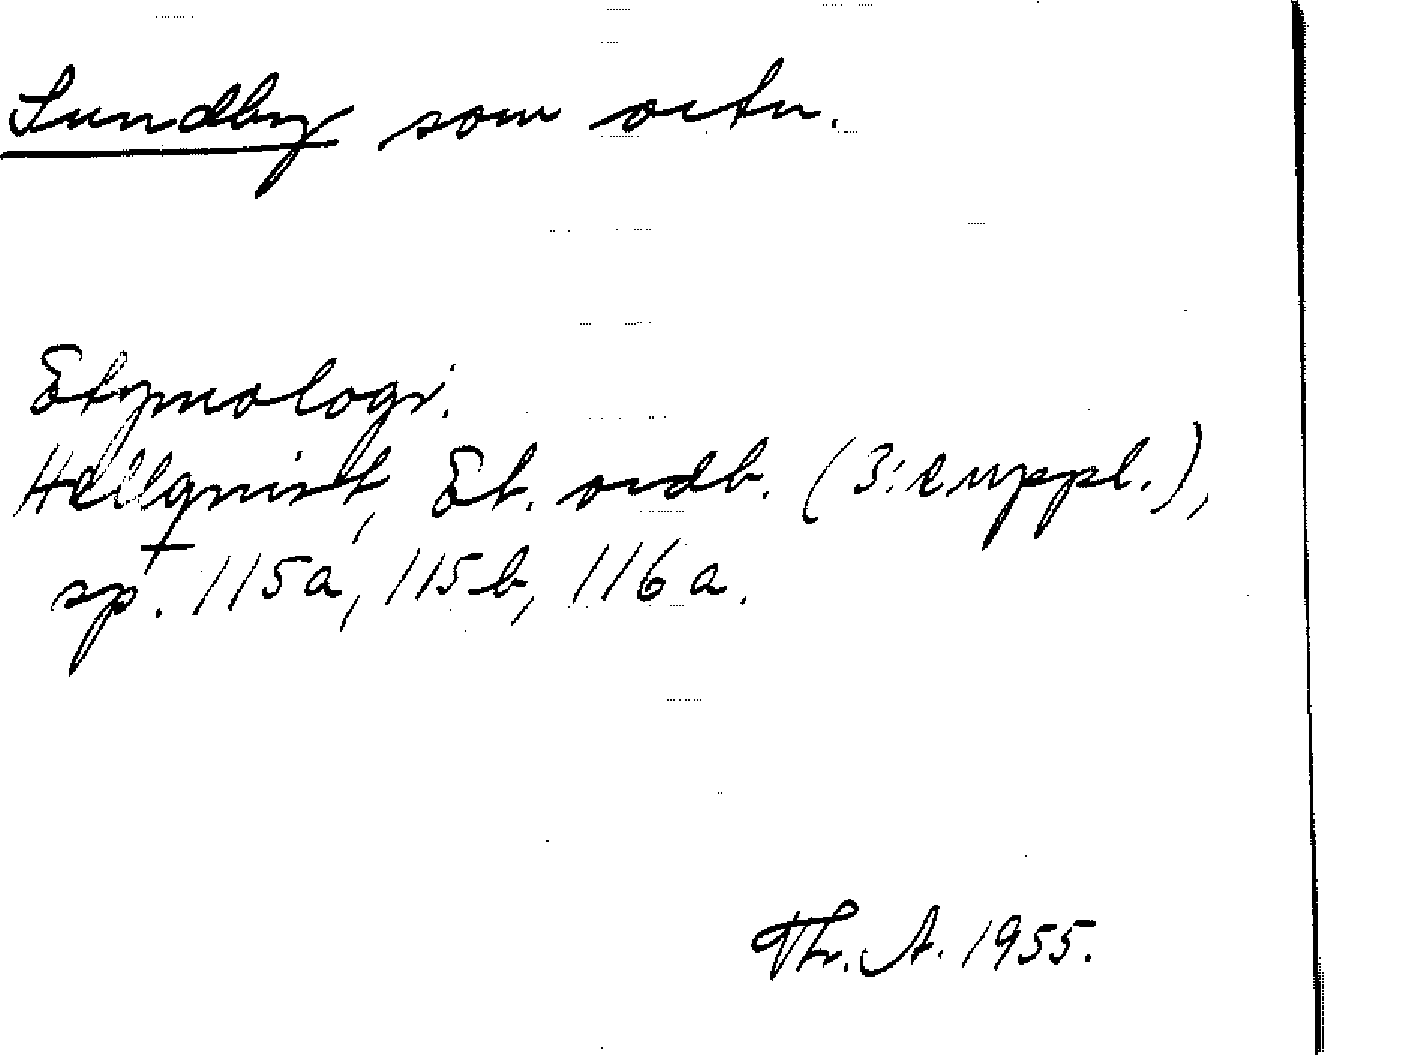 Lundby som ortn.
Etymologi.
Hellquist, Et. ordb. (3:e uppl.),
sp. 115a, 115b, 116a.
Thr. A. 1955.